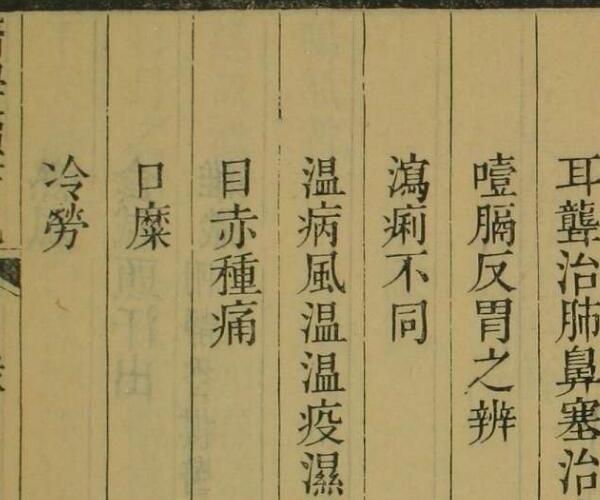 耳聾治肺鼻塞治
噎膈反胃之辨
瀉痢不同
温病風温温疫濕
目赤種痛
口糜
冷勞